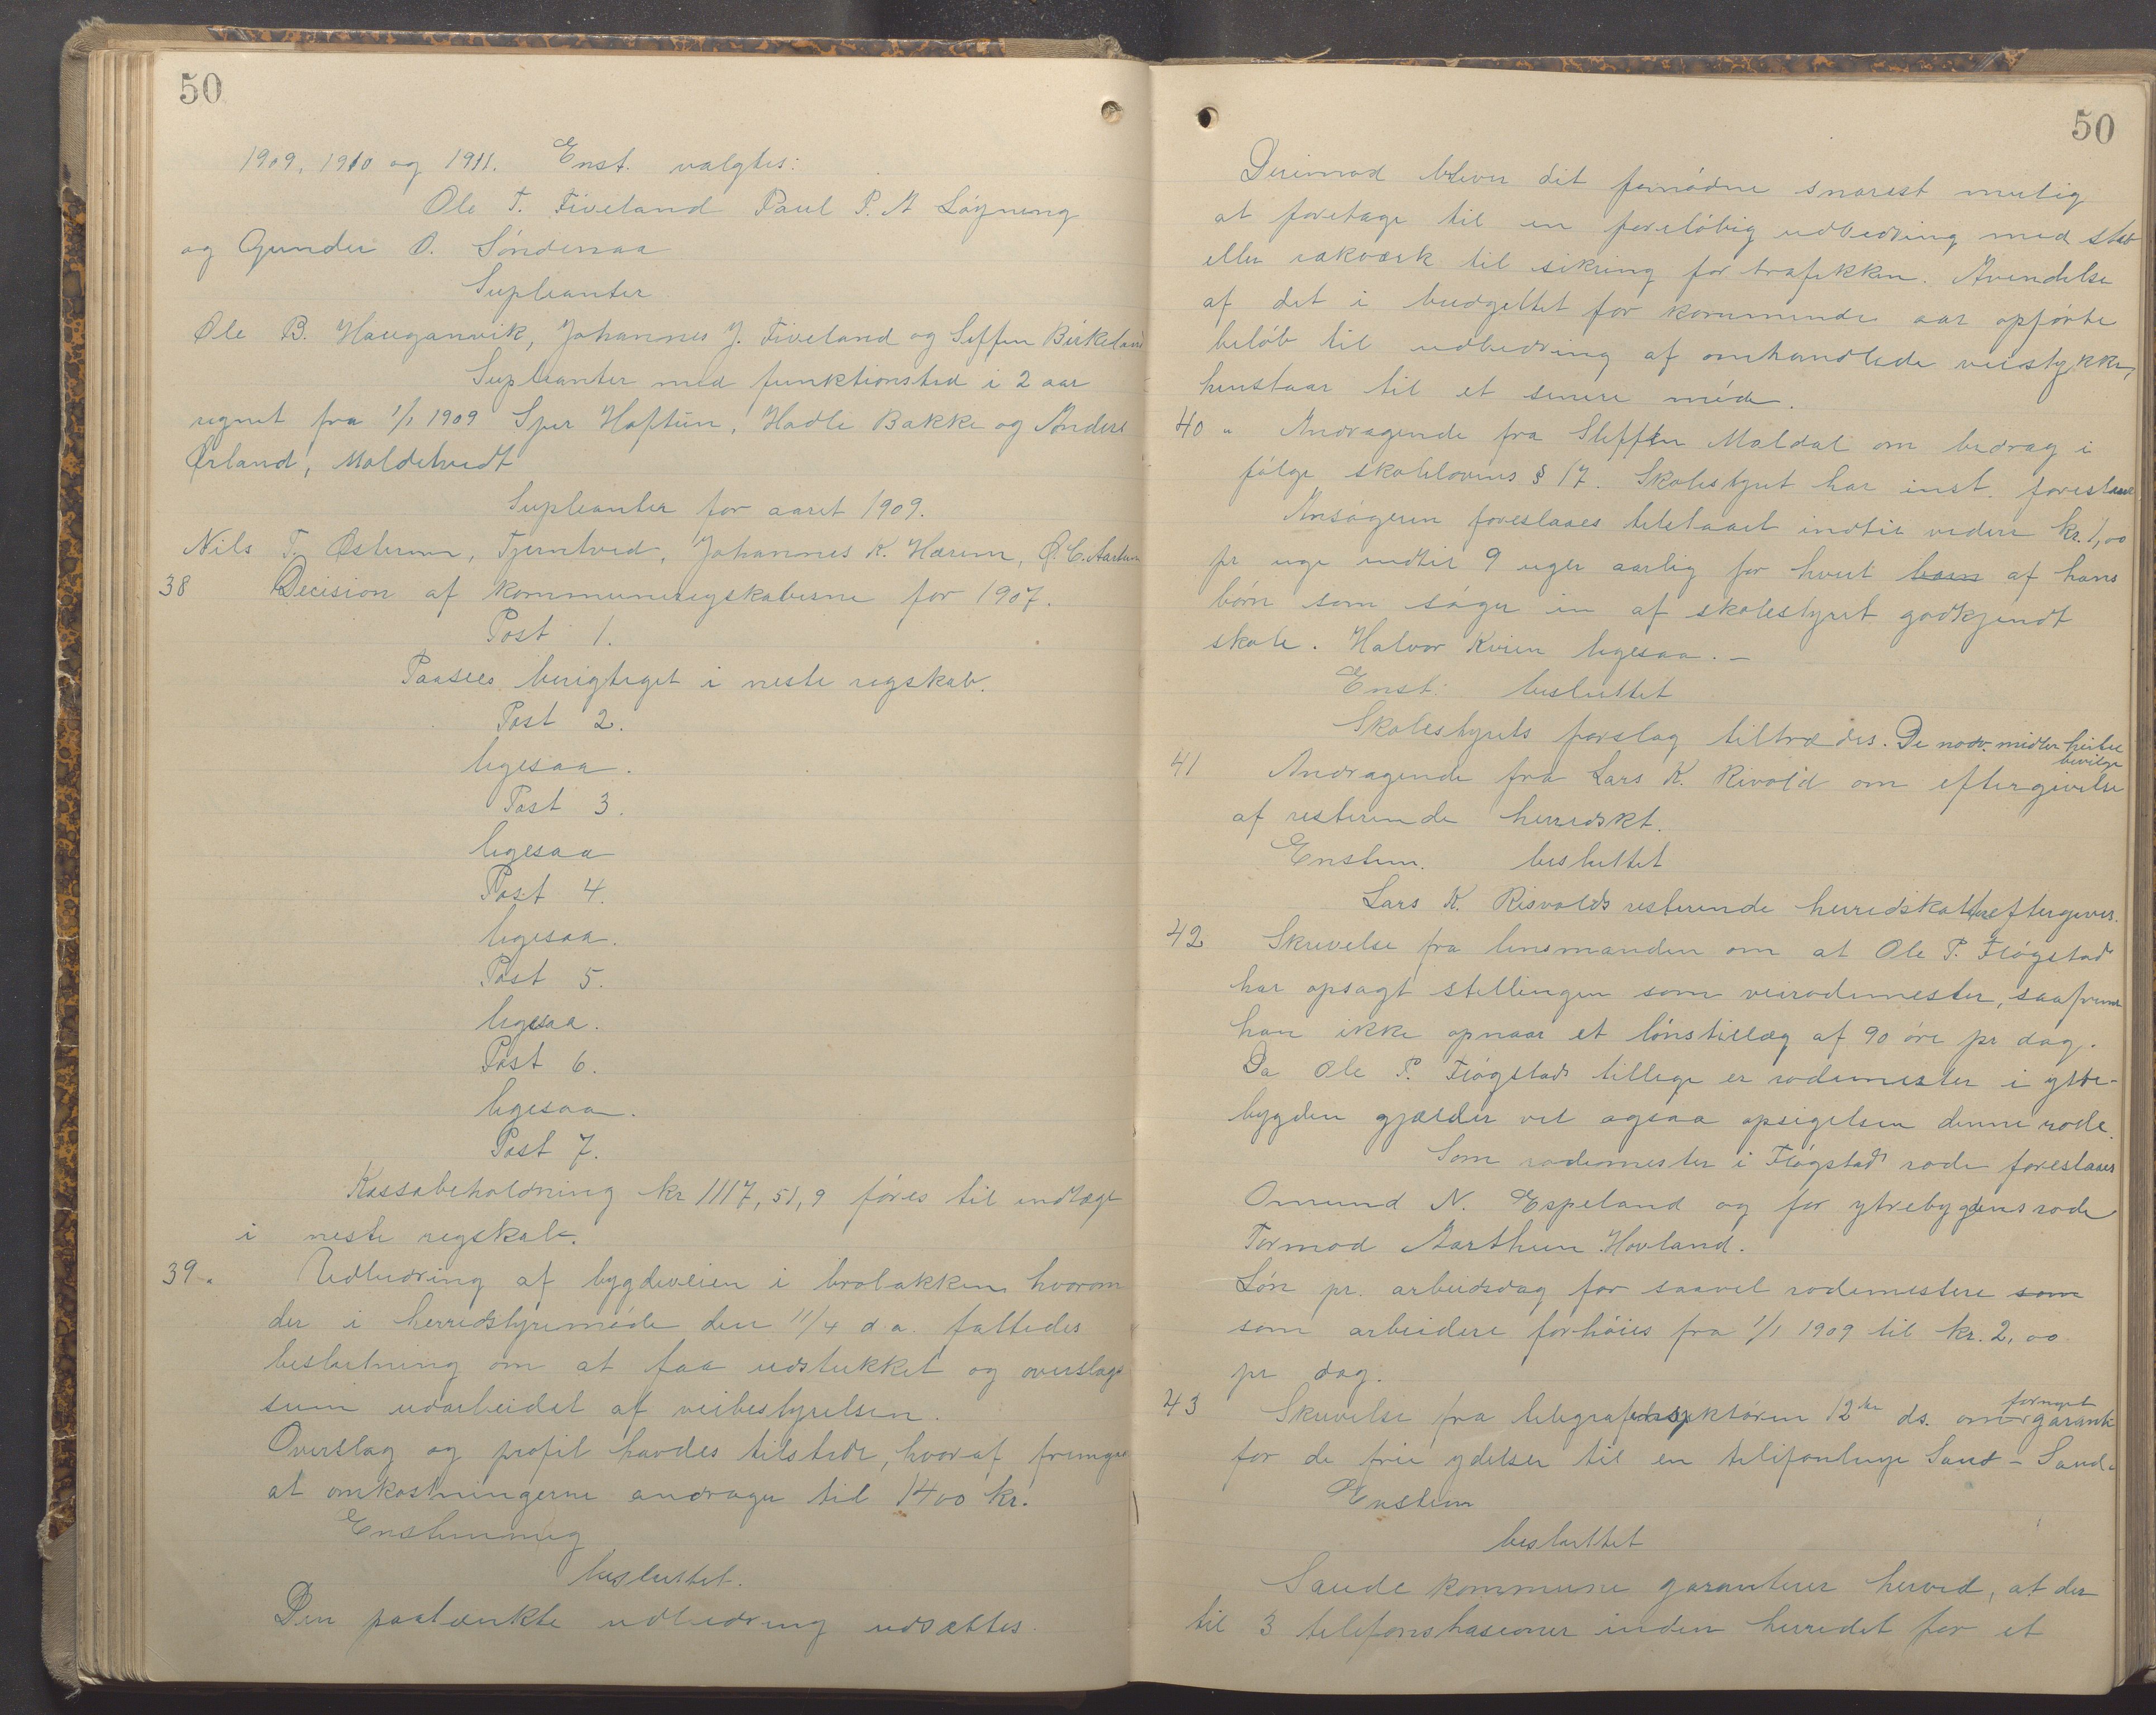 50
1909, 1910 og 1911. Enst. valgtes:
Ole T. Fiveland Paul P. A Løgning
og Gunder O. Søndenaa
Supleanter
Ole B. Hauganvik, Johannes J. Fiveland og Seffen Birkeland
Supleanter med funktionstid i 2 aar
regnet fra 1/1 1909 Sjur Haftun, Hadle Bakke og Anders
Ørland, Maldetvedt
Supleanter for aaret 1909.
Nils T. Østerun, Tjerntved, Johannes K. Harun, O. C. Aarthun
38 Decision af kommuneregskaberne for 1907.
Post 1.
Paasees berigtiget i neste regskab.
Post 2.
ligesaa.
Post 3.
ligesaa
Post 4.
ligesaa.
Post 5.
ligesaa.
Post 6.
ligesaa.
Post 7.
Kassabeholdning kr 1117,51,9 føres til indtægt
i neste regskab.
39. Udbedring af bygdeveien i brobakken hvorom
der i herredstyremøde den 11/4 d.a. fattedes
beslutning om at faa udstukket og overslags
sum udarbeidet af veibestyrelsen.
Overslag og profil havdes tilstede, hvoraf fremgaar
at omkostningerne andrager til 1400 kr.
Enstemmig
besluttet.
Den paatænkte udbedring udsættes.
50
Derimod blever det fornødne snarest mulig
at foretage til en foreløbig udbedring med stab
eller rækværk til sikring for trafikken. Avendelse
af det i budgettet for kommende aar opførte
beløb til udbedring af omhandlede veistykke,
henstaar til et senere møde.
40 " Andragende fra Steffen Maldal om bedrag i
følge skolelovens § 17. Skolestyret har inst. foreslaaet
Ansøgeren foreslaaes tilstaaet indtil videre kr. 1,00
pr uge indtil 9 uger aarlig for hvert barn af hans
børn som søger in af skolestyret godkjendt
skole. Halvor Kvien ligesaa. –
Enst. besluttet
Skolestyrets forslag tiltrædes. De nødv. midler hertil
bevilges
41 Andragende fra Lars K. Risvold om eftergivelse
af resterende herredskt.
Enstem. besluttet
Lars K. Risvolds resterende herredskat eftergives.
42 Skrivelse fra lensmanden om at Ole P. Fløgstad
har opsagt stillingen som veirodemester, saafremt
han ikke opnaar et lønstillæg af 90 øre pr dag.
Da Ole P. Fløgstad tillige er rodemester i ytre-
bygden gjælder vel ogsaa opsigelsen denne rode.
Som rodemester i Fløgstad rode foreslaaes
Omund N. Espeland og for ytrebygdens rode
Tormod Aarthun Hovland.
Løn pr. arbeidsdag for saavel rodemestere som
som arbeidere forhøies fra 1/1 1909 til kr. 2,00
pr dag.
43 Skrivelse fra telegrafinspektøren 12te ds. om fornyet garanti
for de frie ydelser til en telefonlinje Sand – Sauda
Enstem
besluttet
Saude kommune garanterer herved, at der
til 3 telefonstasioner inden herredet for et